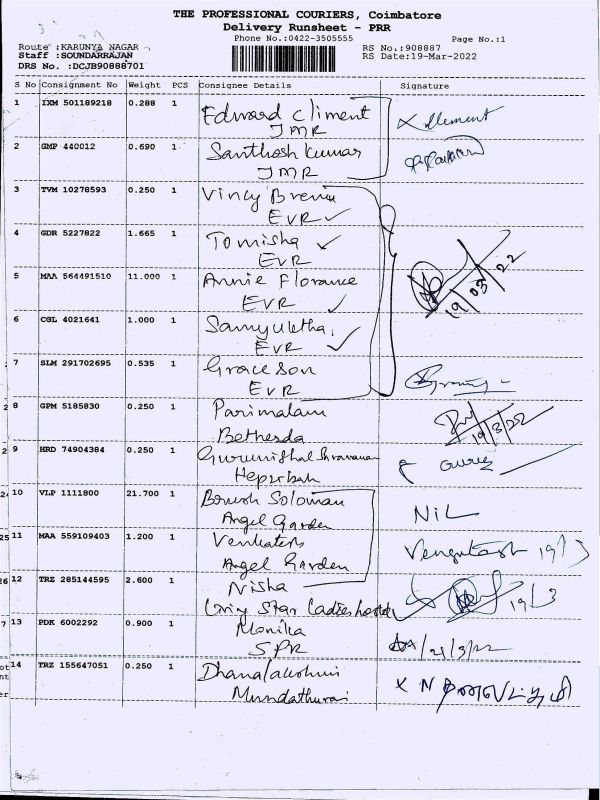 THE PROFESSIONAL COURIERS, Coimbatore
Delivery Runsheet - PRR
Phone No.:0422-3505555
Page No.:1
Route :KARUNYA NAGAR
RS No.:908887
Staff :SOUNDARRAJAN
RS Date:19-Mar-2022
DRS No. :DCJB90888701
S No Consignment No Weight PCS Consignee Details Signature
1 IXM 501189218 0.288 1 Edward Climent
JMR
2 GMP 440012 0.690 1 Santhosh Kumar
JMR
3 TVM 10278593 0.250 1 Vincy
EVR ✓
4 GDR 5227822 1.665 1 Tomisha ✓
EVR
19/03/22
5 MAA 564491510 11.000 1 Annie Florance
EVR ✓
6 CGL 4021641 1.000 1 Samyuktha
EVR ✓
7 SLM 291702695 0.535 1 Graceson
EVR
8 GPM 5185830 0.250 1 Parimalam
Bethesda 19/3/22
9 HRD 74904384 0.250 1
10 VLP 1111800 21.700 1 Soloman NIL
Angel Garden
11 MAA 559109403 1.200 1 Venkatesh 19/3
Angel Garden
12 TRZ 285144595 2.600 1 Nisha
Star Ladies hostel 19/3
13 PDK 6002292 0.900 1 Monika
SPR
14 TRZ 155647051 0.250 1 Dhanalakshmi
Mundathurai